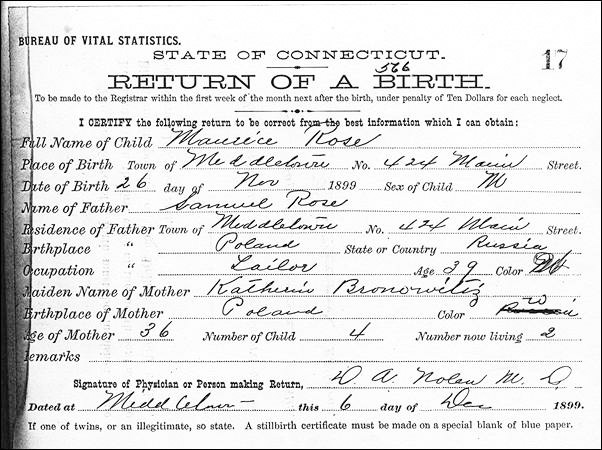 BUREAU OF VITAL STATISTICS.
STATE OF CONNECTICUT.
17
566
RETURN OF A BIRTH.
To be made to the Registrar within the first week of the month next after the birth, under penalty of Ten Dollars for each neglect.
I CERTIFY the following return to be correct from the best information which I can obtain:
Full Name of Child Maurice Rose
Place of Birth Town of Meddletown No. 424 Main Street.
Date of Birth 26 day of Nov 1899 Sex of Child M
Name of Father Samuel Rose
Residence of Father Town of Meddletown No. 424 Main Street.
Birthplace " Poland State or Country Russia
Occupation " Tailor Age 39 Color W
Maiden Name of Mother Katherin Bronowitz
Birthplace of Mother Poland Color W
Age of Mother 36 Number of Child 4 Number now living 2
Remarks
Signature of Physician or Person making Return, D. A. Nolan M. D
Dated at Meddletown this 6 day of Dec 1899.
If one of twins, or an illegitimate, so state. A stillbirth certificate must be made on a special blank of blue paper.